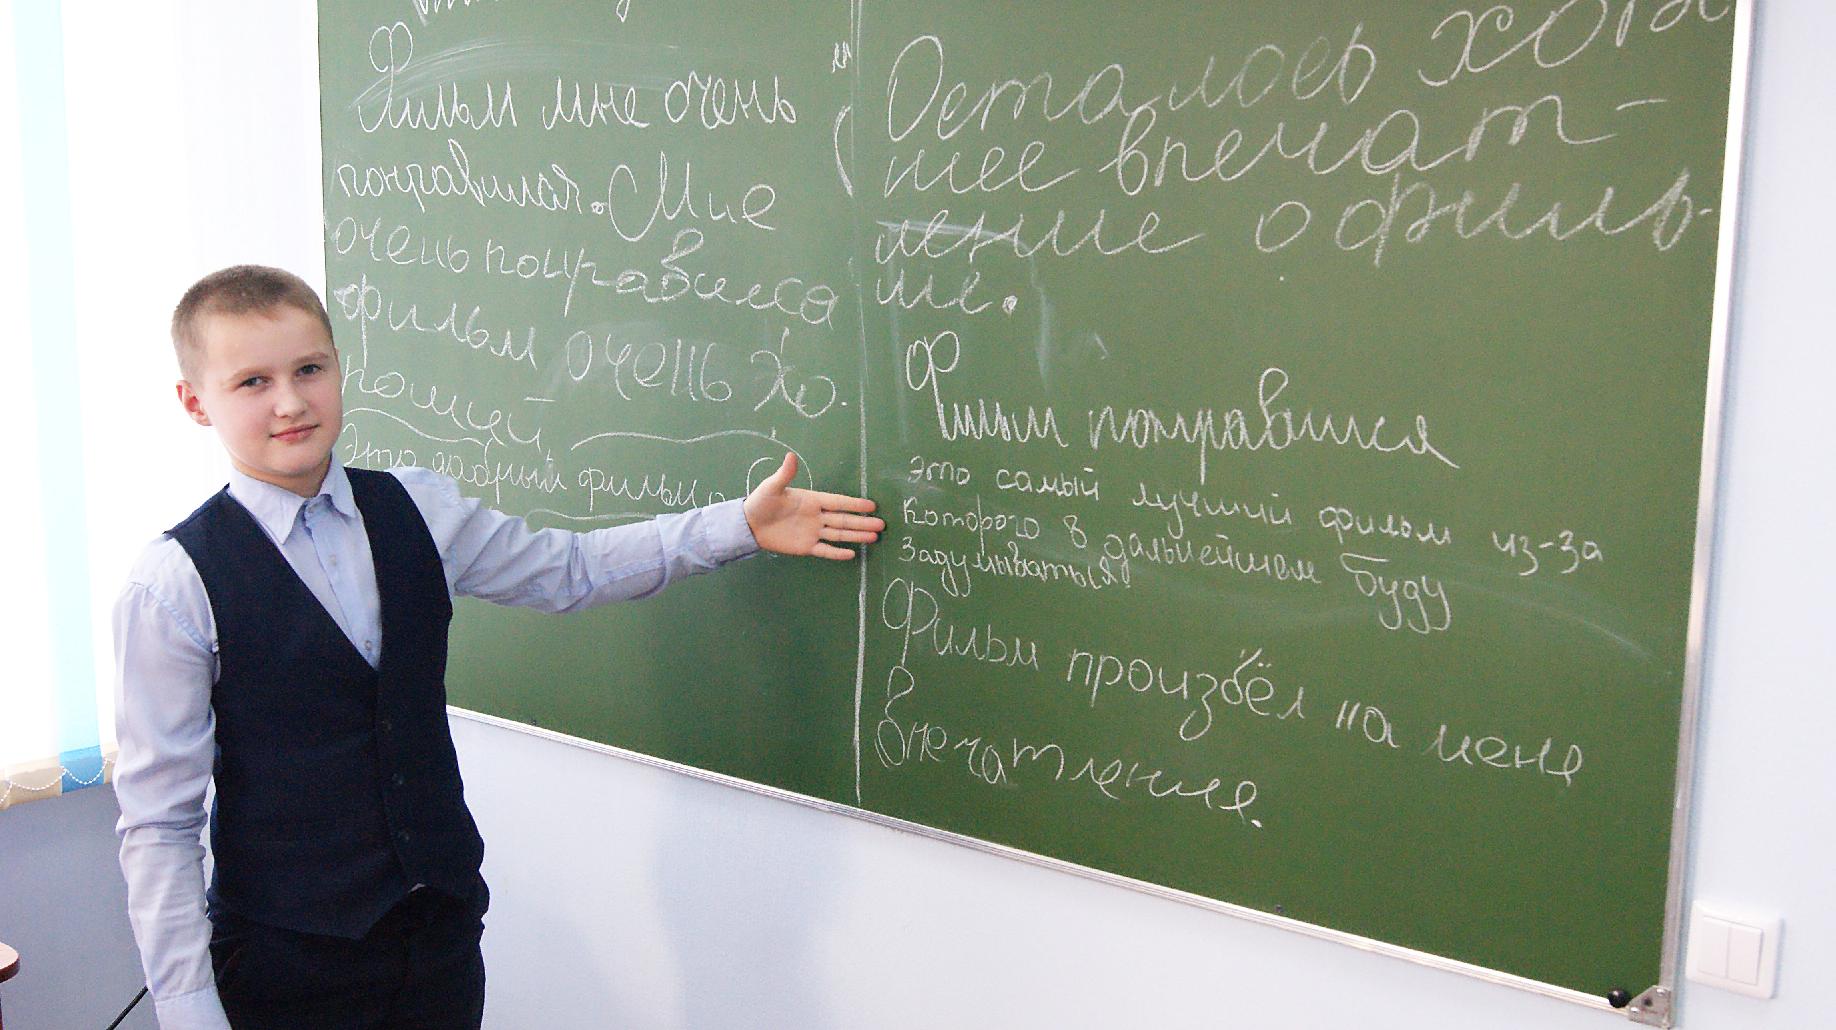 Фильм мне очень
понравился. Мне
очень понравился
фильм очень хо-
роший
Это добрый фильм
Осталось хоро
шее впечат-
ление о филь-
ме.
Фильм понравился
Это самый лучший фильм из-за
которого в дальнейшем буду
задумываться.
Фильм произвёл на меня
впечатление.